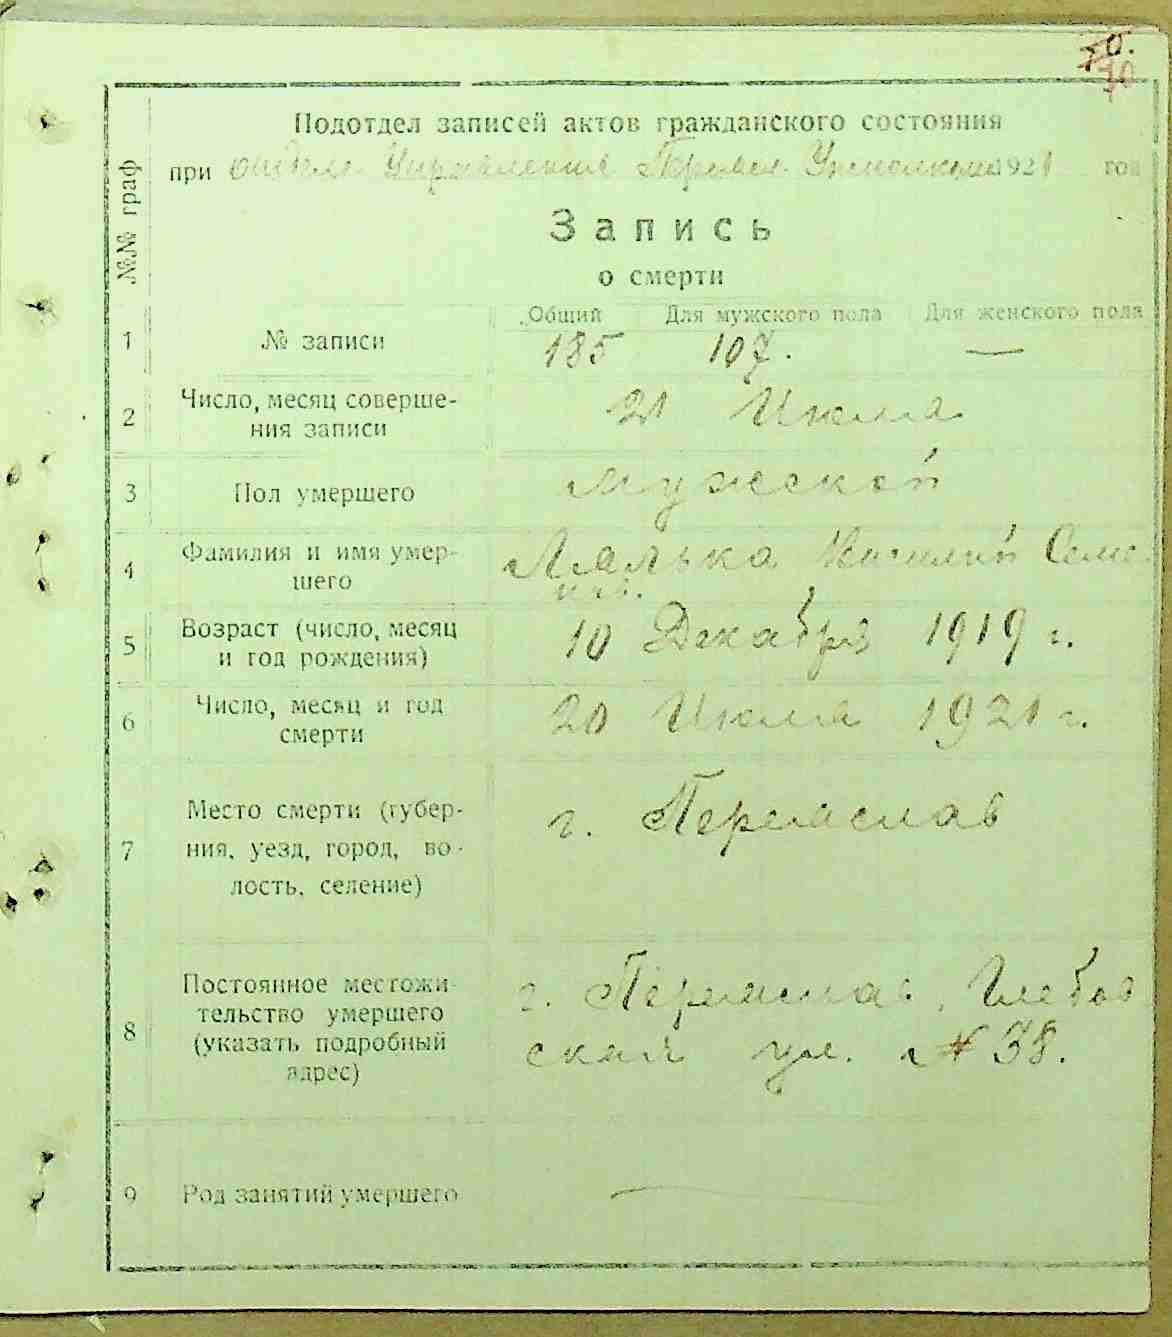 70.
70
Подотдел записей актов гражданского состояния
при отделе Управления Переясл. Уисполкома 1921 год
№№ граф
Запись
о смерти
Общий Для мужского пола Для женского пола
1 № записи 185 107. —
2 Число, месяц соверше-
ния записи 21 Июля
3 Пол умершего мужской
4 Фамилия и имя умер-
шего Лялька Василий Семе-
нов.
5 Возраст (число, месяц
и год рождения) 10 Декабря 1919 г.
6 Число, месяц и год
смерти 20 Июля 1921 г.
7 Место смерти (губер-
ния, уезд, город, во-
лость, селение) г. Переяслав
8 Постоянное местожи-
тельство умершего
(указать подробный
адрес) г. Переяслав, Глебов
ская ул. № 38.
9 Род занятий умершего —